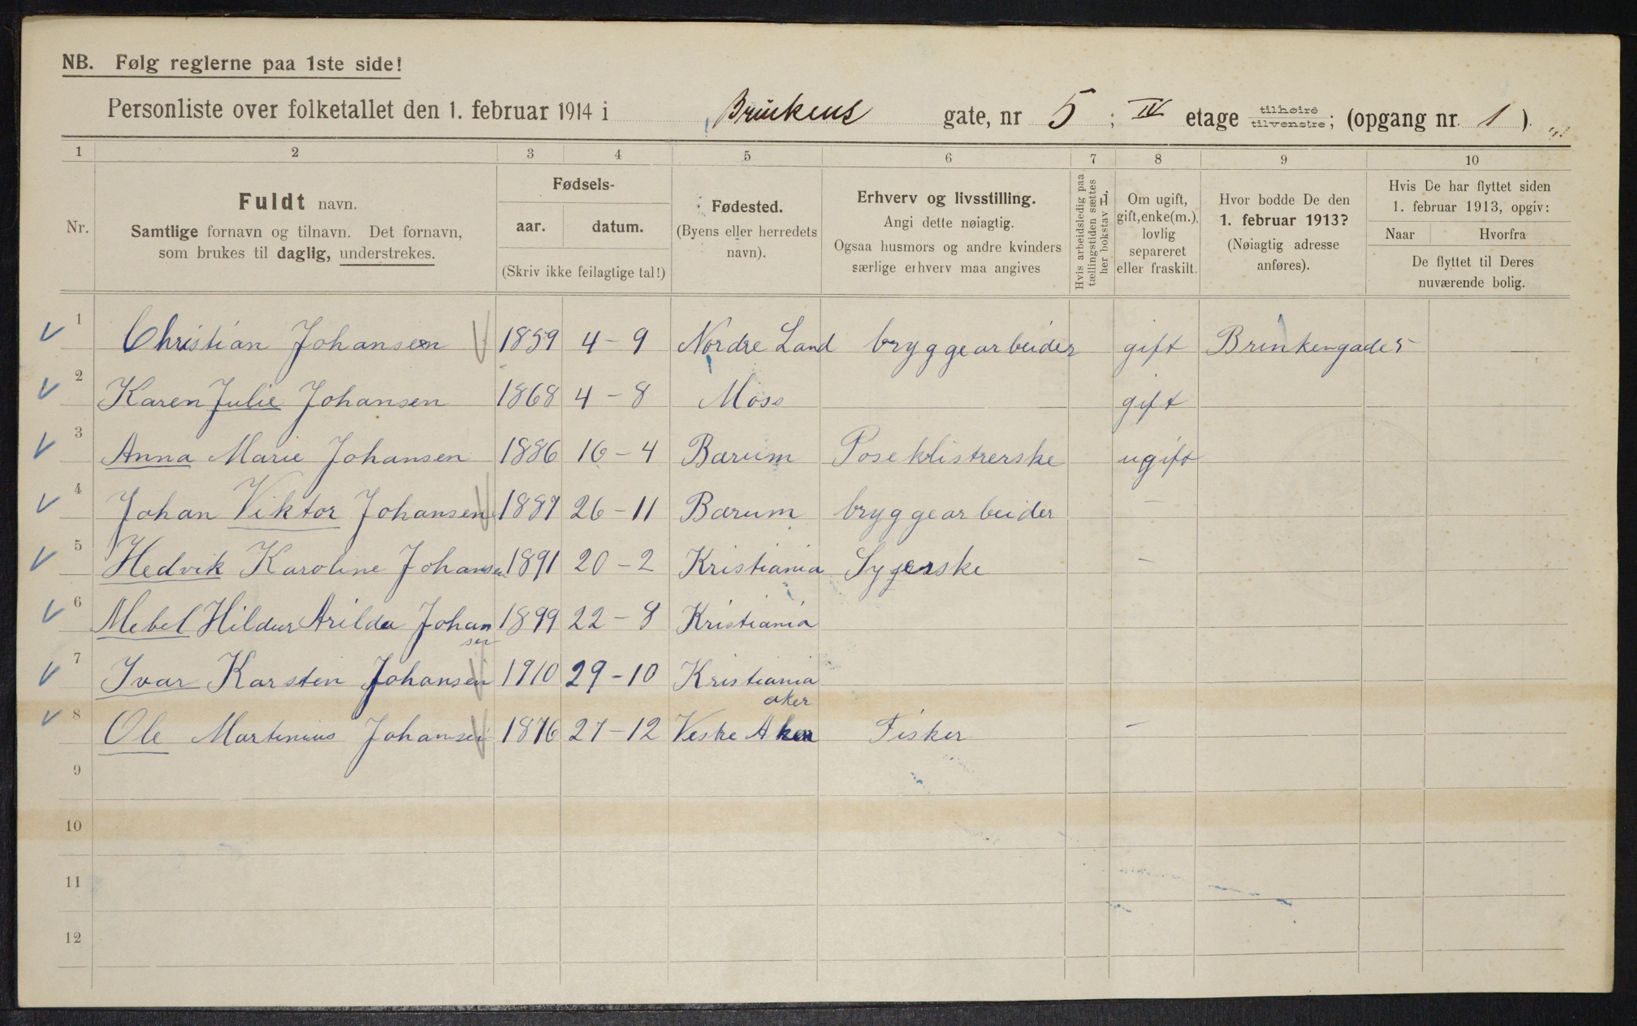 NB. Følg reglerne paa 1ste side!
Personliste over folketallet den 1. februar 1914 i Brinkens gate, nr 5; IV etage tilhøire tilvenstre; (opgang nr. 1).
1 2 3 4 5 6 7 8 9 10
Nr.
Fuldt navn.
Samtlige fornavn og tilnavn. Det fornavn,
som brukes til daglig, understrekes.
Fødsels-
aar. datum.
(Skriv ikke feilagtige tal!)
Fødested.
(Byens eller herredets
navn).
Erhverv og livsstilling.
Angi dette nøiagtig.
Ogsaa husmors og andre kvinders
særlige erhverv maa angives
Hvis arbeidsledig paa
tællingstiden sættes
her bokstav L.
Om ugift,
gift, enke(m.),
lovlig
separeret
eller fraskilt.
Hvor bodde De den
1. februar 1913?
(Nøiagtig adresse
anføres).
Hvis De har flyttet siden
1. februar 1913, opgiv:
Naar Hvorfra
De flyttet til Deres
nuværende bolig.
1 Christian Johansen 1859 4-9 Nordre Land bryggearbeider gift Brinkengade 5
2 Karen Julie Johansen 1868 4-8 Moss gift
3 Anna Marie Johansen 1886 16-4 Barum Poseklistrerske ugift
4 Johan Viktor Johansen 1889 26-11 Barum bryggearbeider —
5 Hedvik Karoline Johansen 1891 20-2 Kristiania Syerske —
6 Mebel Hildur Arilda Johan 1899 22-8 Kristiania
sen
7 Ivar Karsten Johansen 1910 29-10 Kristiania
aker
8 Ole Martinius Johansen 1876 27-12 Vestre Aker Fisker —
9
10
11
12